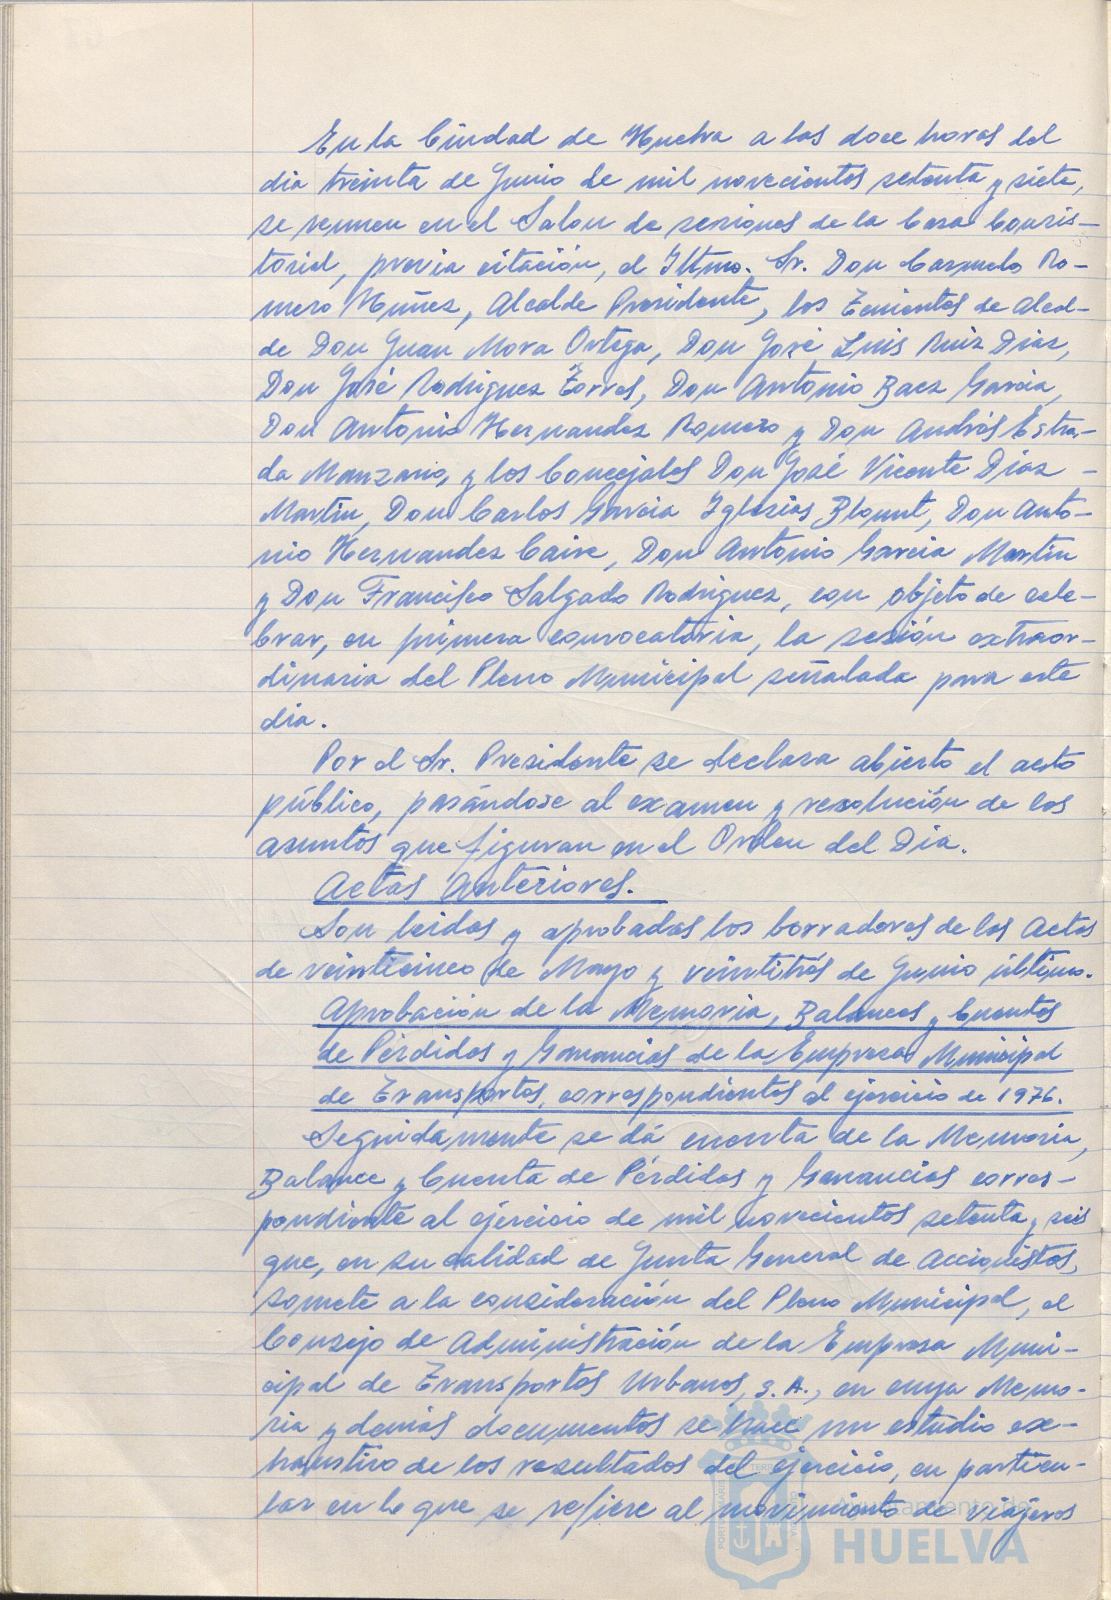 En la Ciudad de Huelva a las doce horas del
dia treinta de Junio de mil novecientos setenta y siete,
se reunen en el Salon de sesiones de la Casa Consis-
torial, previa citación, el Iltmo. Sr. Don Carmelo Ro-
mero Nuñez, Alcalde Presidente, los Tenientes de Alcal-
de Don Juan Mora Ortega, Don José Luis Ruiz Diaz,
Don José Rodriguez Torres, Don Antonio Baez Garcia,
Don Antonio Hernandez Romero y Don Andrés Estra-
da Manzano, y los Concejales Don José Vicente Diaz -
Martin, Don Carlos Garcia Iglesias Blount, Don Anto-
nio Hernandez Caire, Don Antonio Garcia Martin
y Don Francisco Salgado Rodriguez, con objeto de cele-
brar, en primera convocatoria, la sesión extraor-
dinaria del Pleno Municipal señalada para este
dia.
Por el Sr. Presidente se declara abierto el acto
público, pasándose al examen y resolución de los
asuntos que figuran en el Orden del Dia.
Actas Anteriores.
Son leidas y aprobadas los borradores de las Actas
de veinticinco de Mayo y veintitrés de Junio último.
Aprobación de la Memoria, Balances y Cuentas
de Pérdidas y Ganancias de la Empresa Municipal
de Transportes, correspondientes al ejercicio de 1976.
Seguidamente se dá cuenta de la Memoria,
Balance y Cuenta de Pérdidas y Ganancias corres-
pondiente al ejercicio de mil novecientos setenta y seis
que, en su calidad de Junta General de Accionistas,
somete a la consideración del Pleno Municipal, el
Consejo de Administración de la Empresa Muni-
cipal de Transportes Urbanos, S.A., en cuya Memo-
ria y demás documentos se hace un estudio ex-
haustivo de los resultados del ejercicio, en particu-
lar en lo que se refiere al movimiento de viajeros
Ayuntamiento de
HUELVA